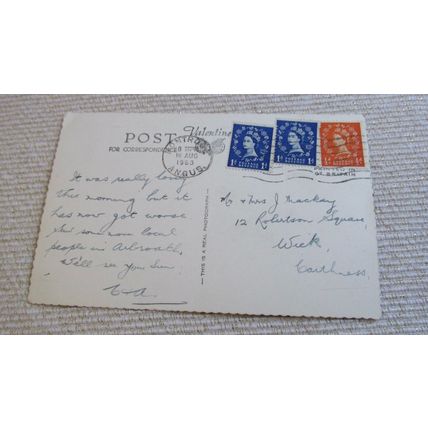 POST
Valentine
FOR CORRESPONDENCE
MONTROSE
16 AUG
1963
ANGUS.
1D
1D
½D
It was really lovely
this morning but it
has now got worse
We saw some local
people in Arbroath,
We'll see you soon.
THIS IS A REAL PHOTOGRAPH
Mr & Mrs J Mackay
12 Robertson Square,
Wick,
Caithness.